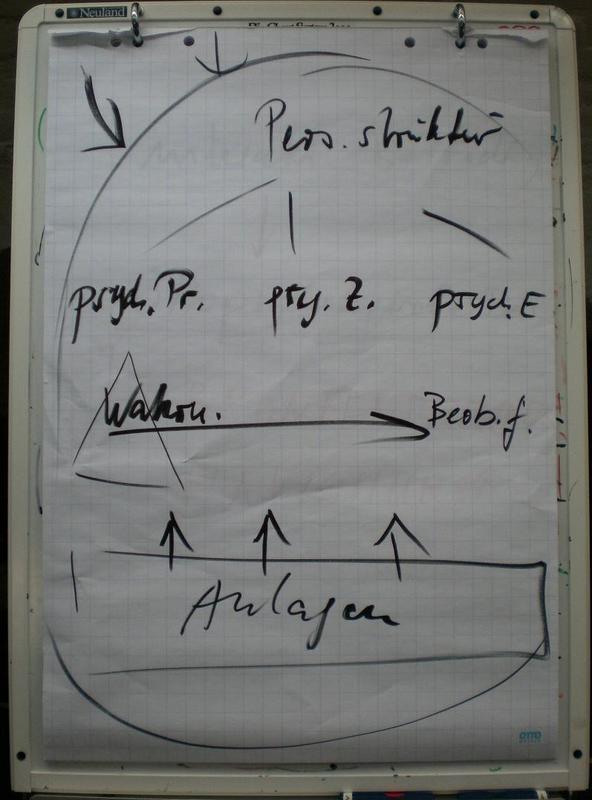 Neuland
Pers. struktur
psych. Pr. psy. Z. psych. E
Wahrn. Beob. f.
Anlagen
OTTO